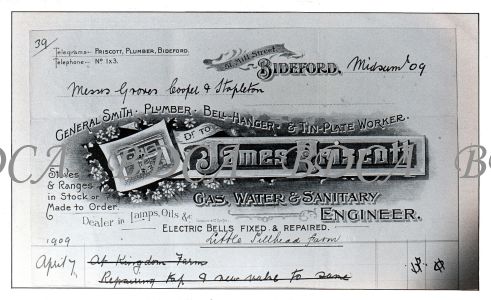 39
Telegrams— PRISCOTT, PLUMBER, BIDEFORD.
Telephone— No 1x3.
51 Mill Street,
BIDEFORD,
Midsumr 09
Messrs Groves Cooper & Stapleton
GENERAL SMITH · PLUMBER · BELL-HANGER · & TIN-PLATE WORKER.
Dr TO
James Priscott
Stoves
& Ranges
in Stock or
Made to Order.
GAS, WATER & SANITARY
ENGINEER.
Dealer in Lamps, Oils &c
ELECTRIC BELLS FIXED & REPAIRED.
1909
Little Farm
April 7 At Kingdom Farm
Repairing tap & new valve to same
BDCA BDCA BDCA